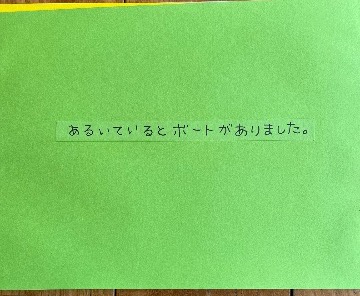 あるいているとボートがありました。